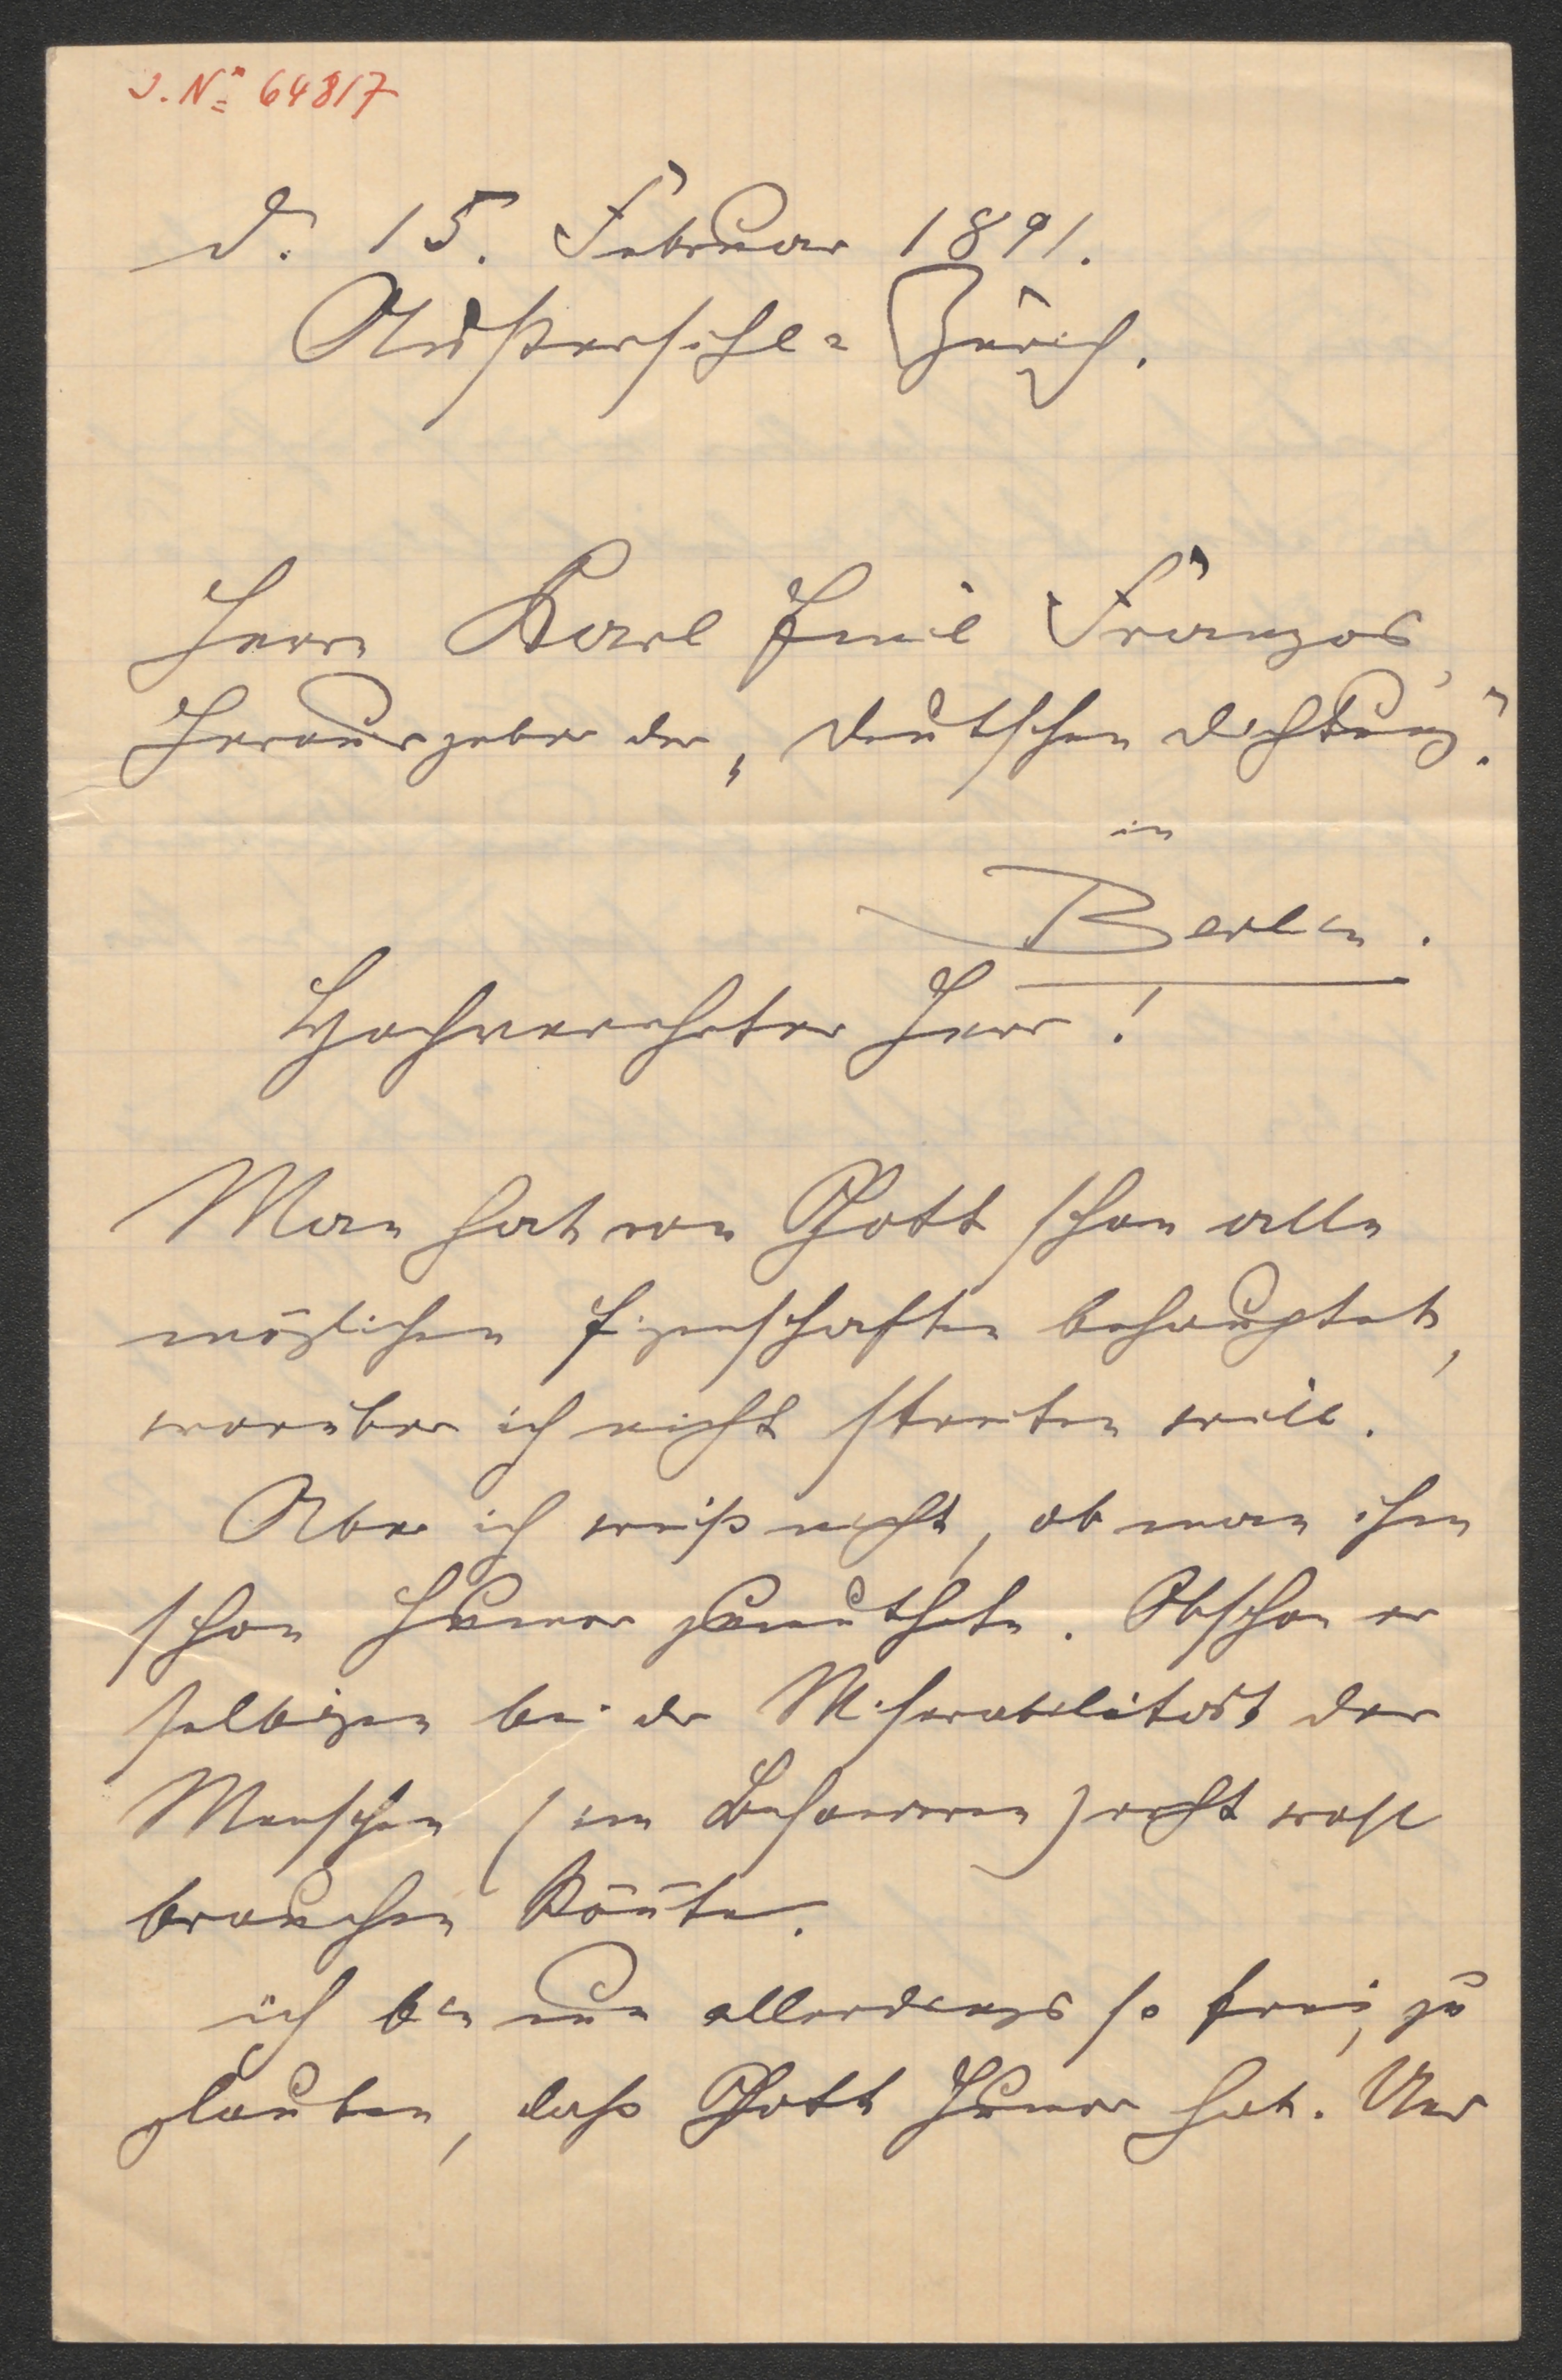 J. Nº 64817
d. 15. Februar 1891.
Außersihl-Zürich.
Herrn Karl Emil Franzos,
Herausgeber der „Deutschen Dichtung".
in
Berlin.
Hochverehrter Herr!
Man hat von Gott schon alle
möglichen Eigenschaften behauptet,
worüber ich nicht streiten will.
Aber ich weiß nicht, ob man ihm
schon Humor zumuthete. Obschon er
selbigen bei der Miserabilität der
Menschen (im Besonderen) recht wohl
brauchen kön̄te.
ich bin nun allerdings so frei, zu
glauben, daß Gott Humor hat. Und